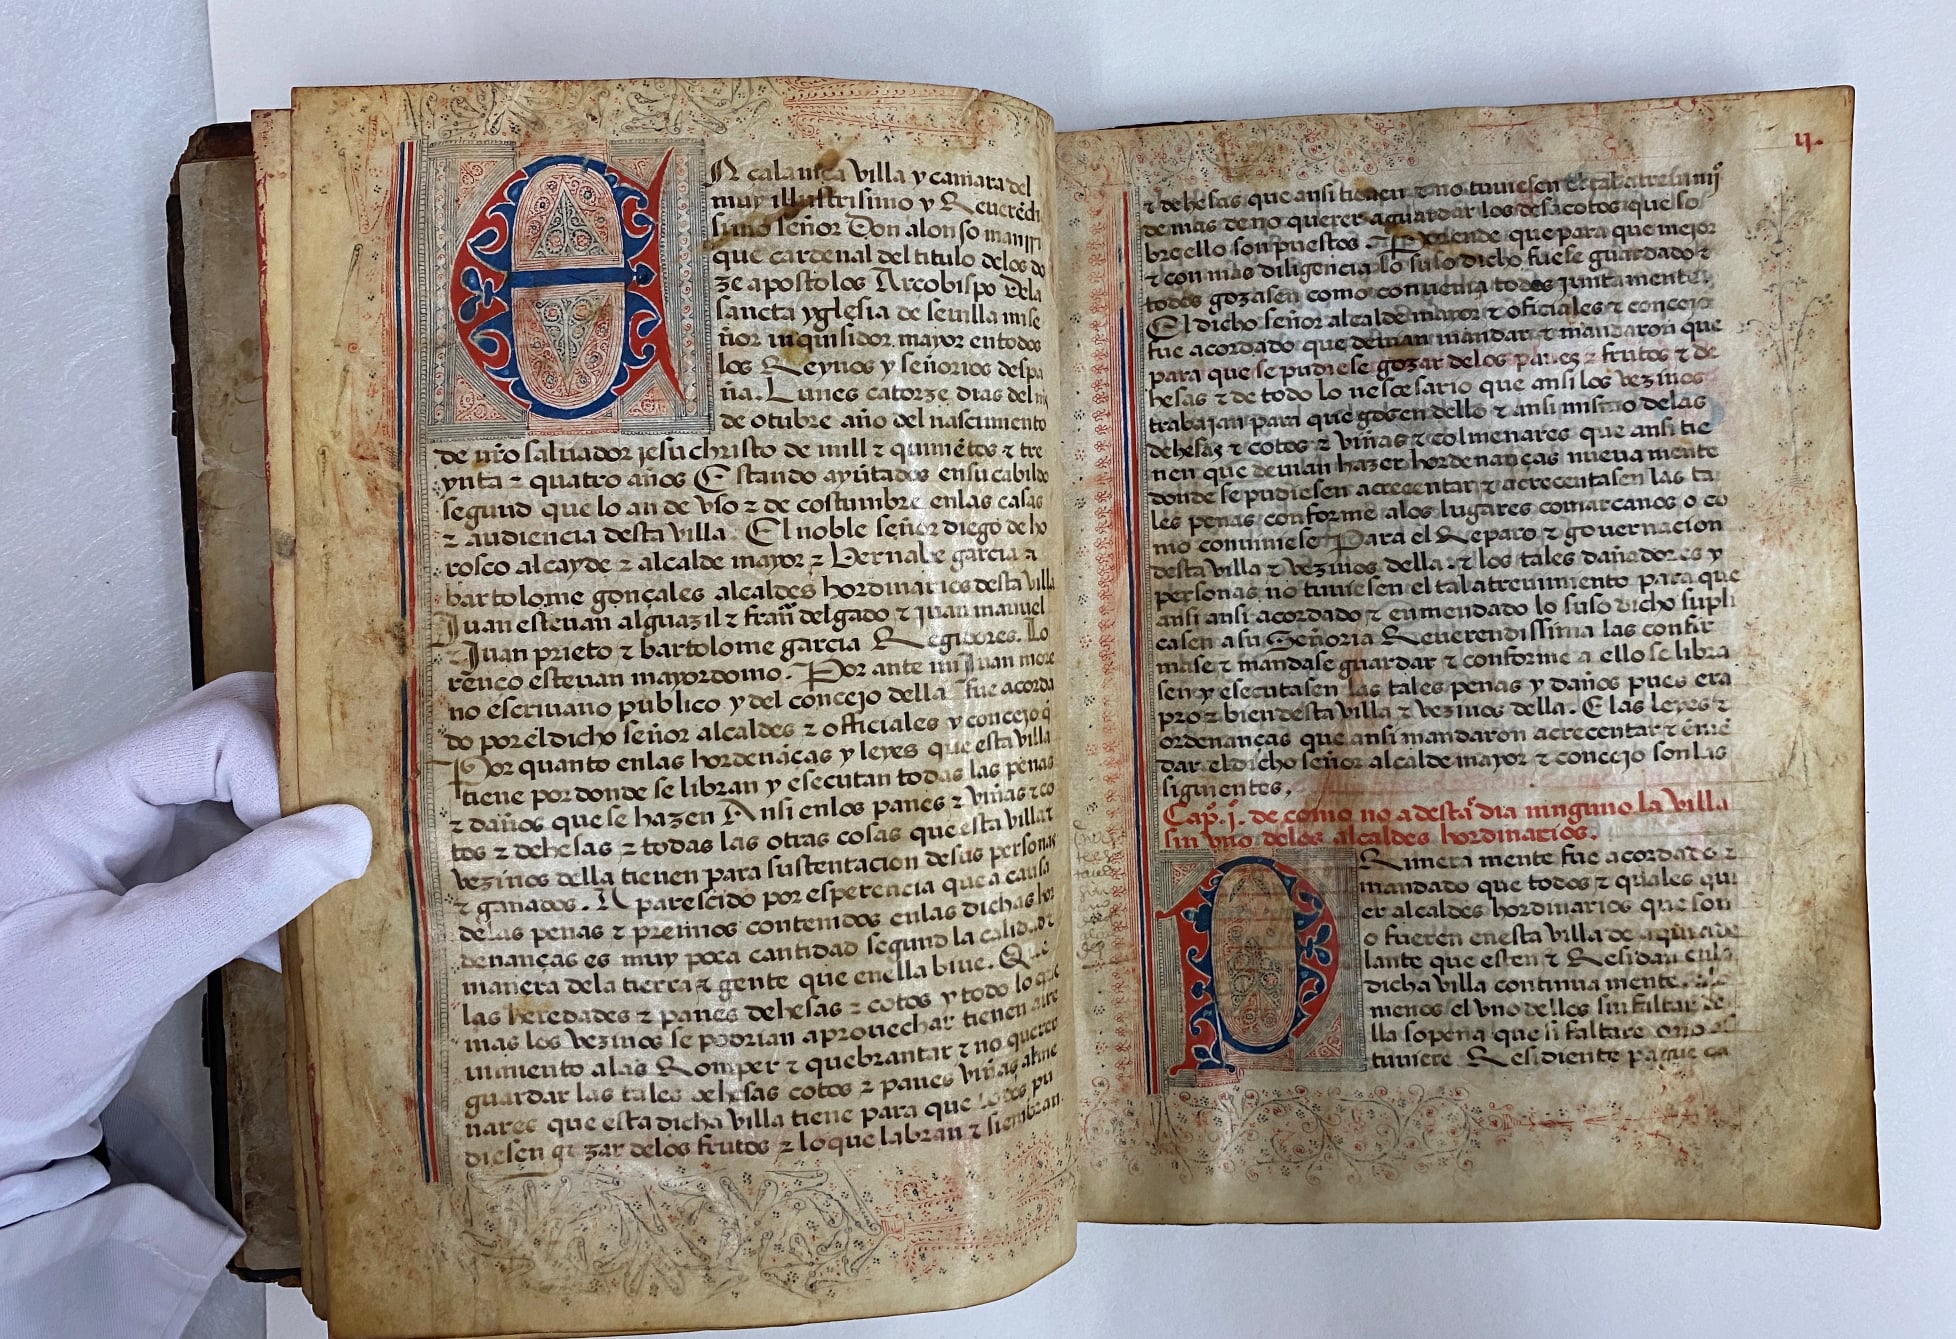 EN la laniça villa y camara del
muy illustrisimo y Reverẽdi
simo señor Don alonso manrri
que cardenal del titulo delos do
ze apostolos Arcobispo dela
sancta yglesia de sevilla mi se
ñor inquisidor mayor en todos
los Reynos y señorios despa
ña. Lunes catorze dias del
de otubre año del nascimiento
de nr̃o salvador jesu christo de mill τ quiniẽtos τ tre
ynta τ quatro años Estando ayũtados en su cabildo
segund que lo an de vso τ de costumbre en las casas
τ audiencia desta villa. El noble señor diego de ho
rosco alcayde τ alcalde mayor τ Bernabe garcia τ
bartolome gonçales alcaldes hordinarios desta villa
Juan estevan alguazil τ frañ delgado τ juan manuel
τ Juan prieto τ bartolome garcia Regidores. Lo
renço estevan mayordomo. Por ante mi Juan more
no escrivano publico y del concejo della fue acorda
do por el dicho señor alcaldes τ officiales y concejo q̃
Por quanto en las hordenãças y leyes que esta villa
tiene por donde se libran y esecutan todas las penas
τ daños que se hazen Ansi en los panes τ viñas τ co
tos τ dehesas τ todas las otras cosas que esta villa τ
vezinos della tienen para sustentacion de sus personas
τ ganados. A parescido por esperencia que a causa
delas penas τ premios contenidos en las dichas hor
denanças es muy poca cantidad segund la calidad τ
manera dela tierra τ gente que en ella bive. Que
las heredades τ panes dehesas τ cotos y todo lo que
mas los vezinos se podrian aprovechar tienen atre
vimiento a las Romper τ quebrantar τ no querer
guardar las tales dehesas cotos τ panes viñas alme
nares que esta dicha villa tiene para que todos pu
diesen gozar delos frutos τ lo que labran τ siembran.
ij.
τ dehesas que ansi tienen τ no tuviesen el tal atrevimi
de mas de no querer aguardar los desacotos que so
bre ello son puestos. Porende que para que mejor
τ con mas diligencia lo suso dicho fuese guardado τ
todos gozasen como convenia todos juntamente.
El dicho señor alcalde mayor τ oficiales τ concejo
fue acordado que devian mandar τ mandaron que
para que se pudiese gozar delos panes τ frutos τ de
hesas τ de todo lo nescesario que ansi los vezinos
trabajan para que gosen dello τ ansi mismo delas
dehesas τ cotos τ viñas τ colmenares que ansi tie
nen que devian hazer hordenanças nueva mente
donde se pudiesen acrecentar τ acrecentasen las ta
les penas conforme a los lugares comarcanos o co
mo conviniese Para el Reparo τ governacion
desta villa τ vezinos della. τ los tales dañadores y
personas no tuviesen el tal atrevimiento para que
ansi ansi acordado τ enmendado lo suso dicho supli
casen a su Señoria Reverendissima las confir
mase τ mandase guardar τ conforme a ello se libra
sen y esecutasen las tales penas y daños pues era
pro τ bien desta villa τ vezinos della. E las leyes τ
ordenanças que ansi mandaron acrecentar τ ẽmẽ
dar el dicho señor alcalde mayor τ concejo son las
siguientes.
Cap. j. de como no a destar dia ninguno la villa
sin vno delos alcaldes hordinarios.
PRimera mente fue acordado τ
mandado que todos τ quales qui
er alcaldes hordinarios que son
o fueren en esta villa de aqui ade
lante que esten τ Residan enla
dicha villa continua mente. alo
menos el vno dellos sin faltar de
lla so pena que si faltare o no es
tuviere Residiente pague ca